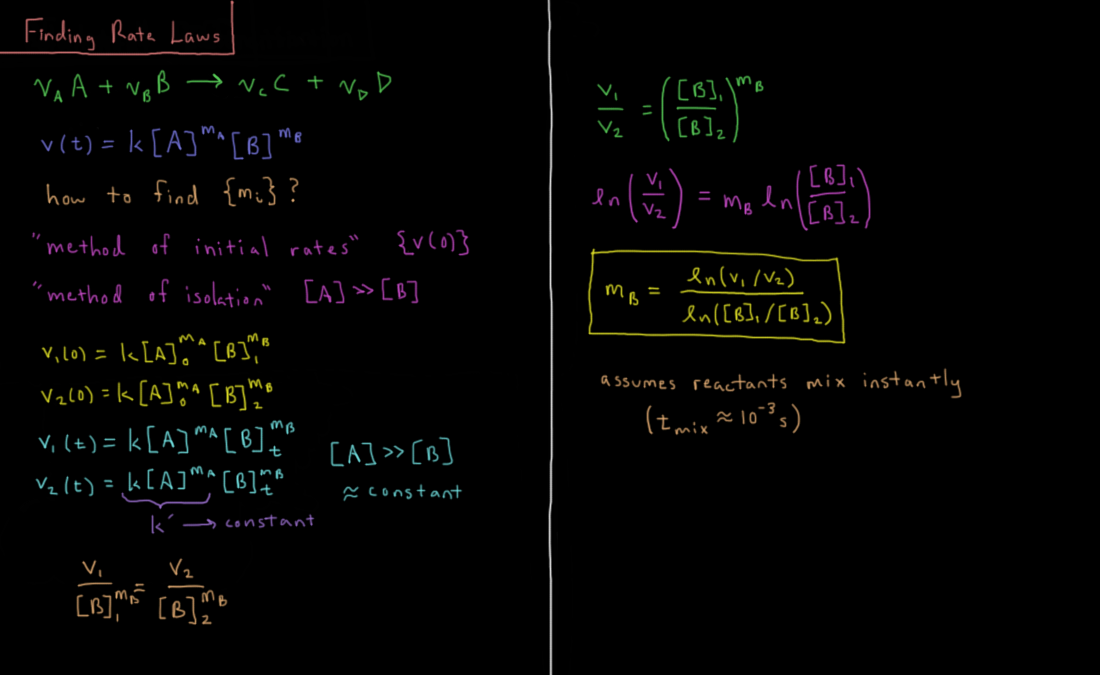 Finding Rate Laws
ν_A A + ν_B B → ν_C C + ν_D D
v(t) = k[A]^{m_A}[B]^{m_B}
how to find {m_i}?
"method of initial rates" {v(0)}
"method of isolation" [A] >> [B]
v_1(0) = k[A]_0^{m_A}[B]_1^{m_B}
v_2(0) = k[A]_0^{m_A}[B]_2^{m_B}
v_1(t) = k[A]^{m_A}[B]_t^{m_B}
v_2(t) = k[A]^{m_A}[B]_t^{m_B}
[A] >> [B]
≈ constant
k′ → constant
v_1/[B]_1^{m_B} = v_2/[B]_2^{m_B}
v_1/v_2 = ([B]_1/[B]_2)^{m_B}
ln(v_1/v_2) = m_B ln([B]_1/[B]_2)
m_B = ln(v_1/v_2)/ln([B]_1/[B]_2)
assumes reactants mix instantly
(t_mix ≈ 10^{-3} s)